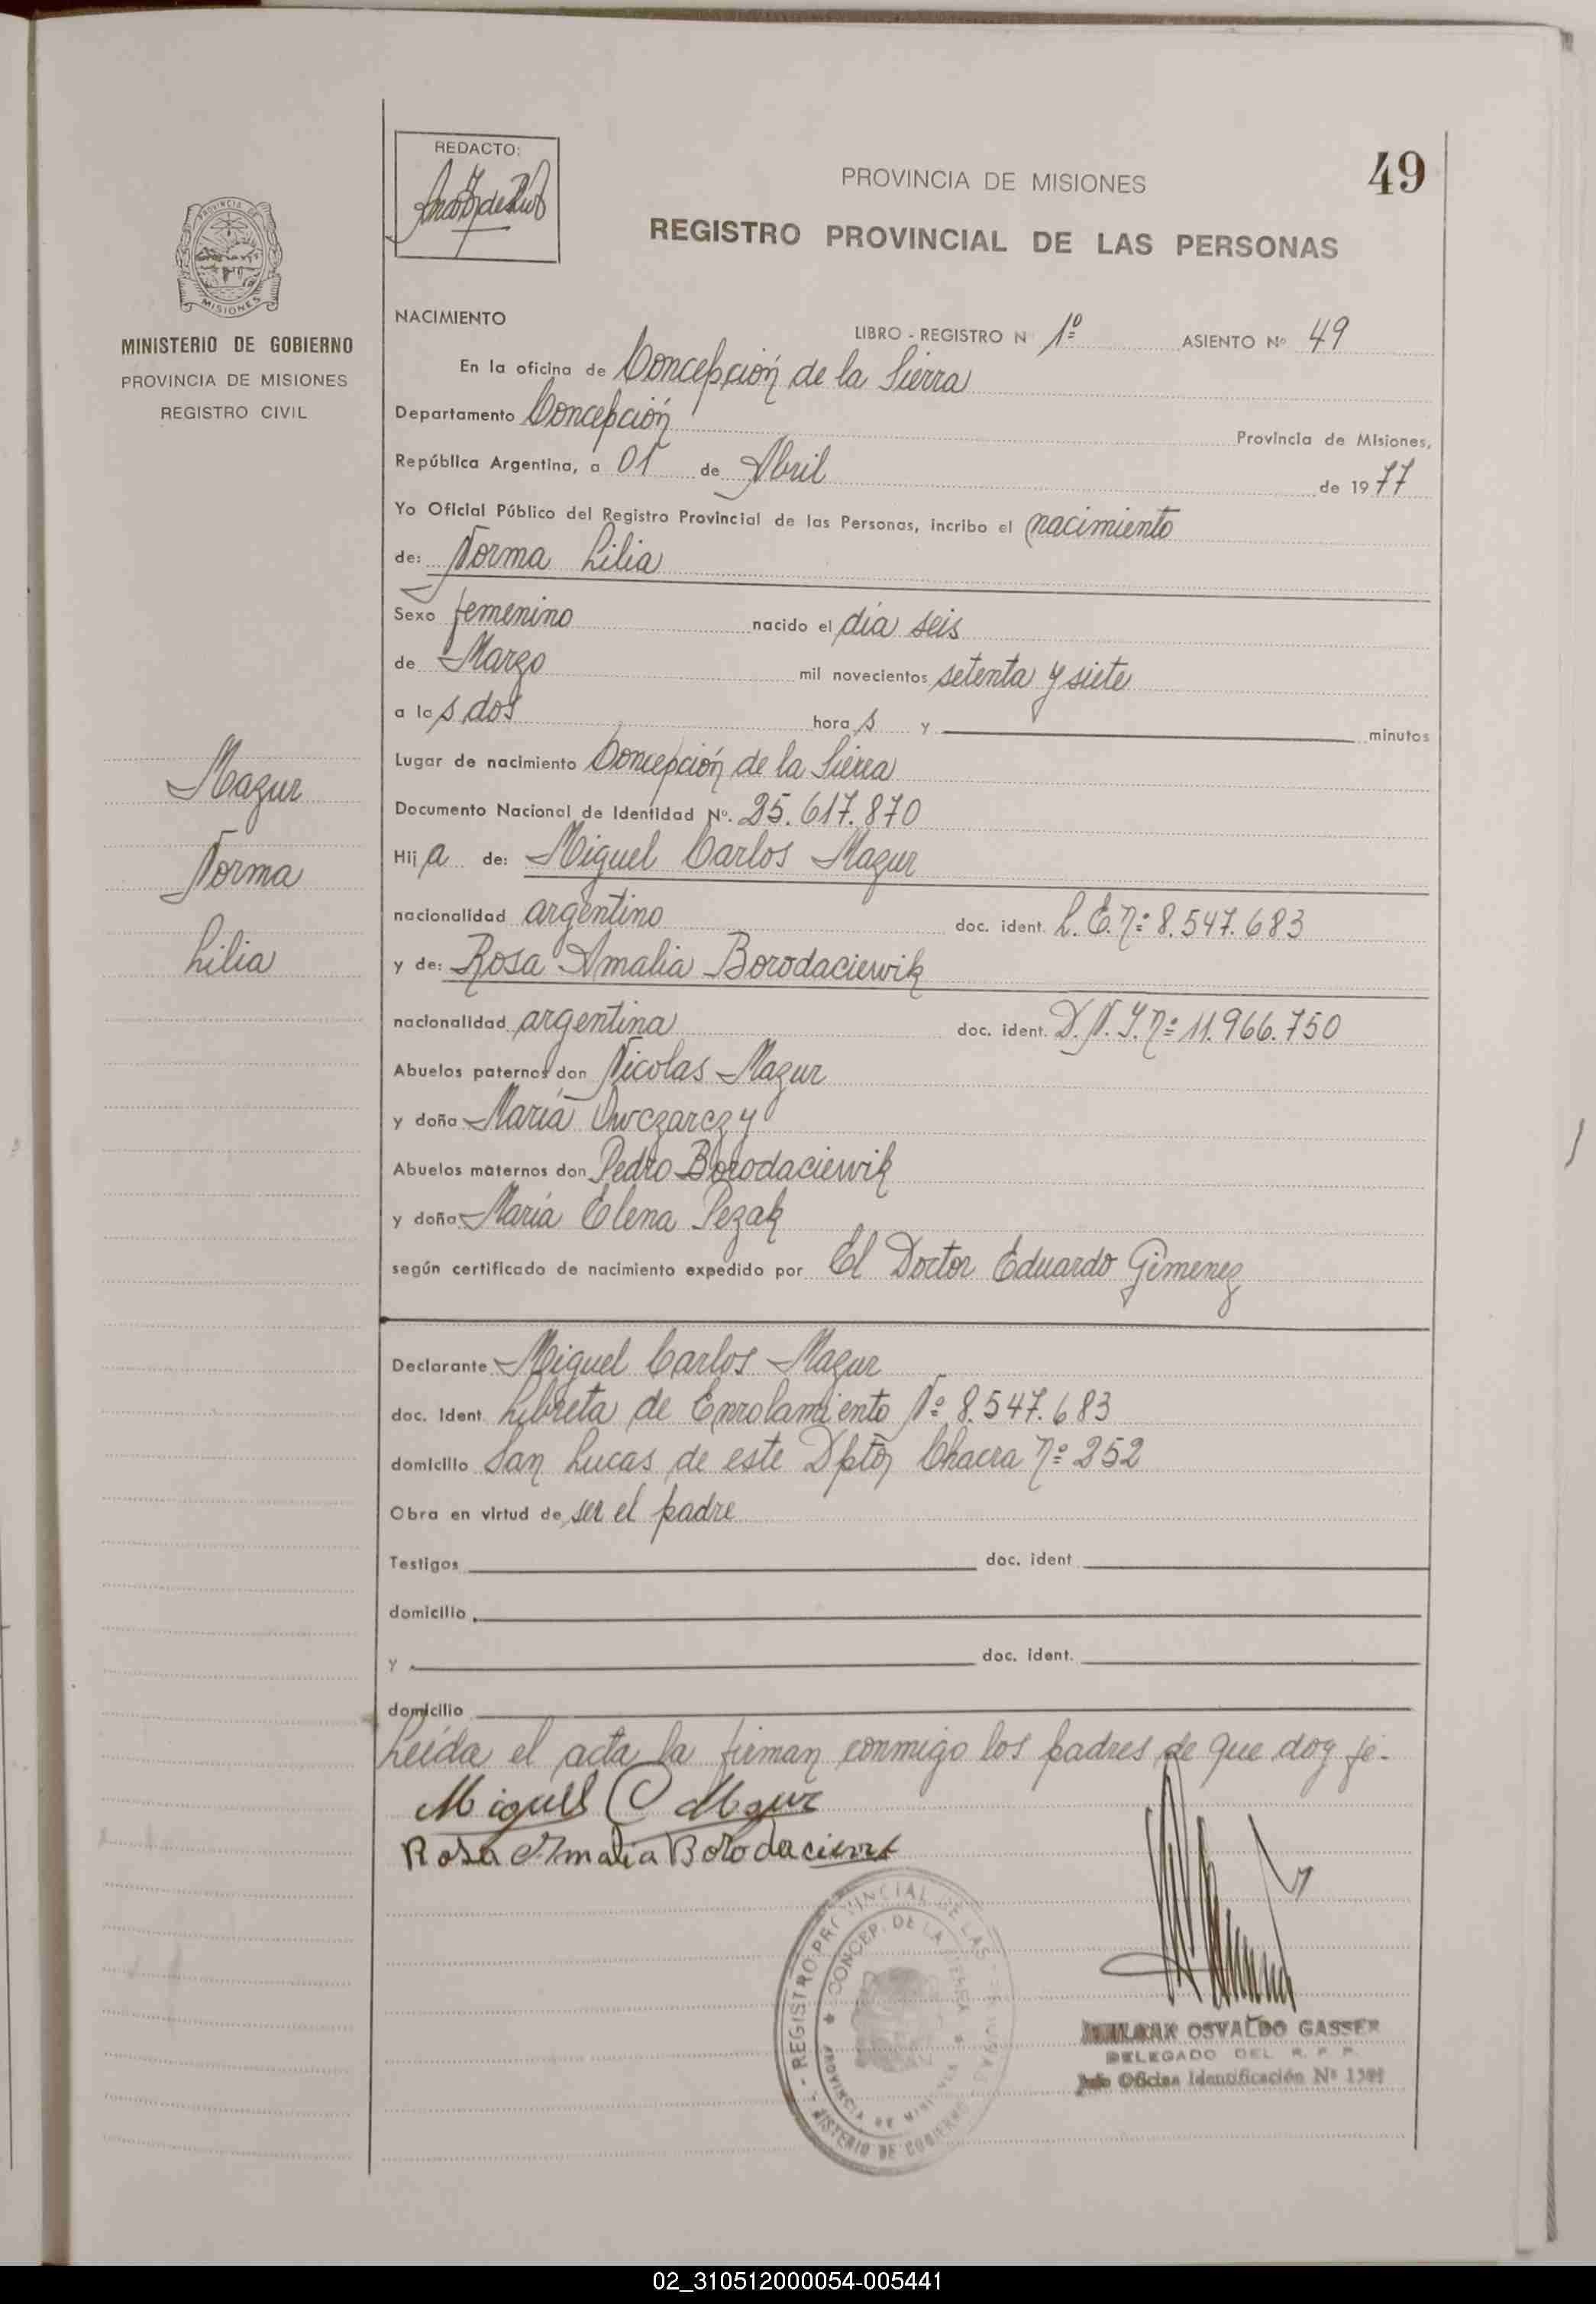 49
REDACTO:
PROVINCIA DE MISIONES
REGISTRO PROVINCIAL DE LAS PERSONAS
PROVINCIA DE
MISIONES
MINISTERIO DE GOBIERNO
PROVINCIA DE MISIONES
REGISTRO CIVIL
Mazur
Norma
Lilia
NACIMIENTO
LIBRO - REGISTRO N 1º ASIENTO Nº 49
En la oficina de Concepción de la Sierra
Departamento Concepción Provincia de Misiones,
República Argentina, a 01 de Abril de 1977
Yo Oficial Público del Registro Provincial de las Personas, incribo el nacimiento
de: Norma Lilia
Sexo femenino nacido el día seis
de Marzo mil novecientos setenta y siete
a las dos horas y minutos
Lugar de nacimiento Concepción de la Sierra
Documento Nacional de Identidad Nº. 25.617.870
Hija de: Miguel Carlos Mazur
nacionalidad argentino doc. ident. L.E.nº 8.547.683
y de: Rosa Amalia Borodaciewik
nacionalidad argentina doc. ident. D.N.I.nº 11.966.750
Abuelos paternos don Nicolas Mazur
y doña María Owczarczy
Abuelos maternos don Pedro Borodaciewik
y doña María Elena Pezak
según certificado de nacimiento expedido por El Doctor Eduardo Gimenez
Declarante Miguel Carlos Mazur
doc. Ident Libreta de Enrolamiento Nº 8.547.683
domicilio San Lucas de este Dpto, Chacra nº 252
Obra en virtud de ser el padre
Testigos doc. ident
domicilio
y doc. ident.
domicilio
Leída el acta la firman conmigo los padres de que doy fe.
Miguel C Mazur
Rosa Amalia Borodaciewik
REGISTRO PROVINCIAL DE LAS
CONCEP. DE LA SIERRA
PROVINCIA DE MISIONES
MINISTERIO DE GOBIERNO
OSVALDO GASSER
DELEGADO DEL R. P. P.
Jefe Oficina Identificación Nº
02_310512000054-005441